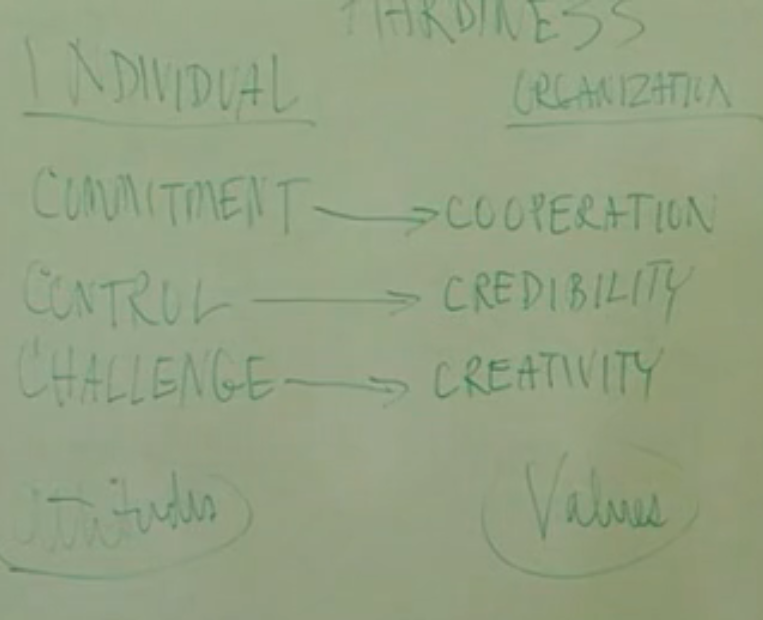 HARDINESS
INDIVIDUAL ORGANIZATION
COMMITMENT → COOPERATION
CONTROL → CREDIBILITY
CHALLENGE → CREATIVITY
Attitudes Values